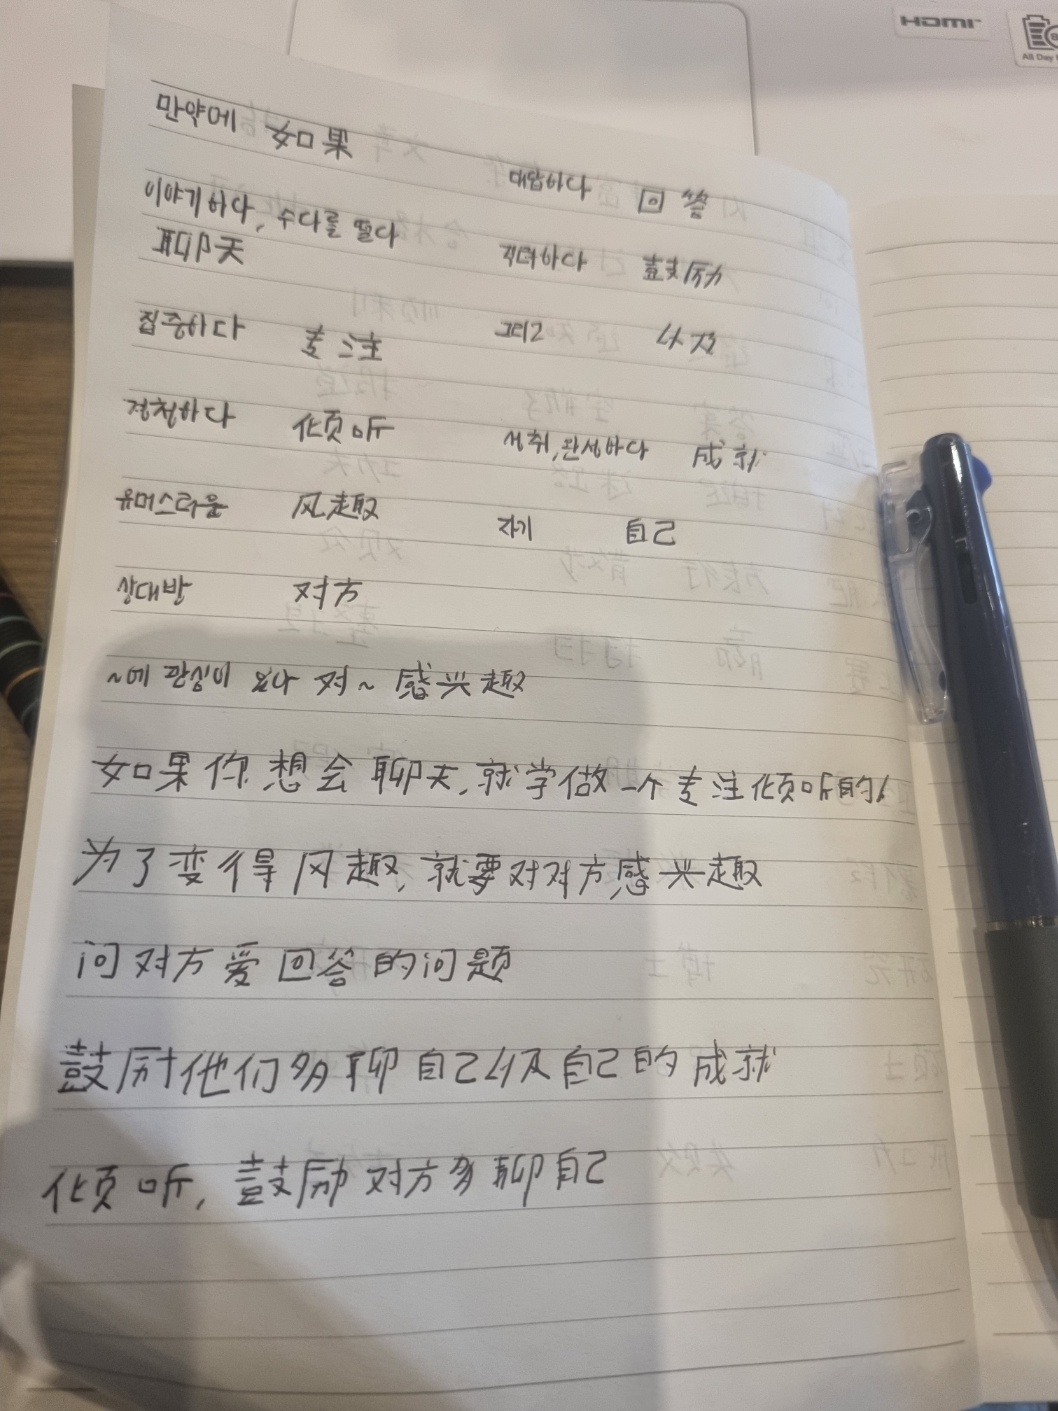 HDMI
All Day
만약에 如果
대답하다 回答
이야기하다, 수다를 떨다
聊天
격려하다 鼓励
집중하다 专注
그리고 以及
경청하다 倾听
성취, 완성하다 成就
유머스러운 风趣
자기 自己
상대방 对方
~에 관심이 있다 对~感兴趣
如果你想会聊天,就学做一个专注倾听的人
为了变得风趣,就要对对方感兴趣
问对方爱回答的问题
鼓励他们多聊自己以及自己的成就
倾听,鼓励对方多聊自己